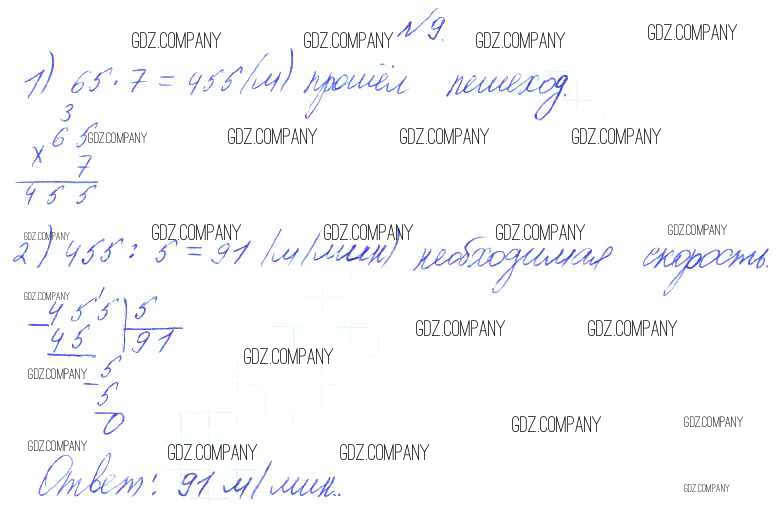 №9.
GDZ.COMPANY GDZ.COMPANY GDZ.COMPANY GDZ.COMPANY
1) 65 · 7 = 455 (м) прошёл пешеход.
3
× 65 GDZ.COMPANY GDZ.COMPANY GDZ.COMPANY GDZ.COMPANY
7
455
GDZ.COMPANY GDZ.COMPANY GDZ.COMPANY GDZ.COMPANY GDZ.COMPANY
2) 455 : 5 = 91 (м/мин) необходимая скорость.
GDZ.COMPANY
- 455 | 5
45 | 91
GDZ.COMPANY GDZ.COMPANY
GDZ.COMPANY
GDZ.COMPANY - 5
5
0
GDZ.COMPANY GDZ.COMPANY
GDZ.COMPANY GDZ.COMPANY GDZ.COMPANY
Ответ: 91 м/мин.
GDZ.COMPANY